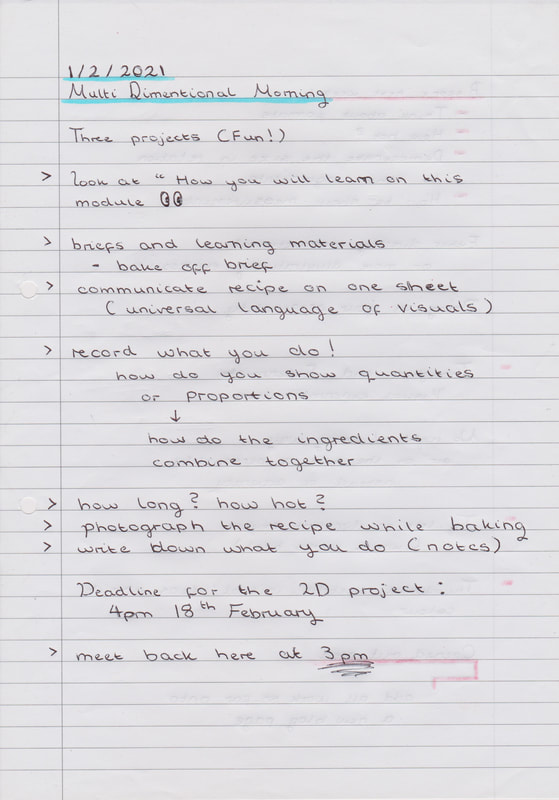 1/2/2021
Multi Dimentional Morning
Three projects (Fun!)
> look at " How you will learn on this
module 👀
> briefs and learning materials
- bake off brief
> communicate recipe on one sheet
(universal language of visuals)
> record what you do!
how do you show quantities
or proportions
↓
how do the ingredients
combine together
> how long? how hot?
> photograph the recipe while baking
> write down what you do (notes)
Deadline for the 2D project:
4pm 18th February
> meet back here at 3pm